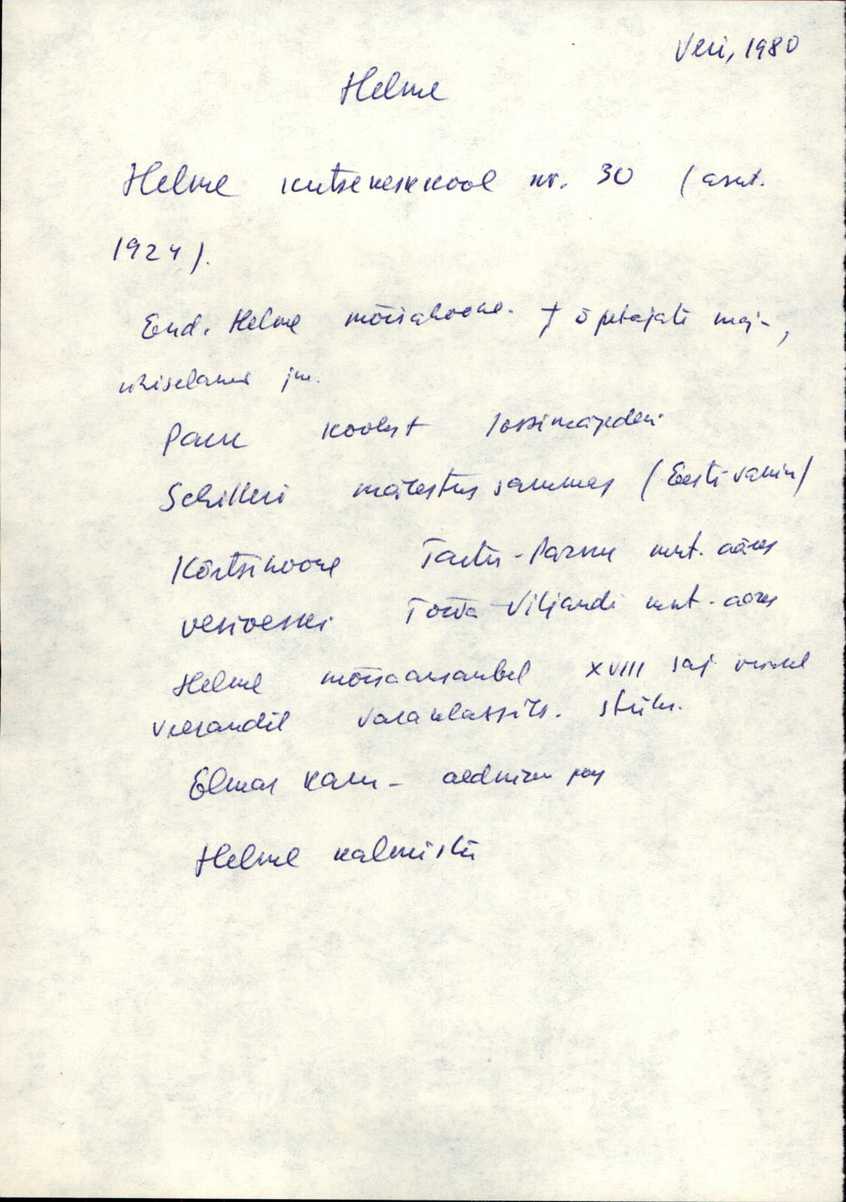 Veri, 1980
Helme
Helme kutsekeskkool nr. 30 (asut.
1924).
End. Helme mõisahoone. + õpetajate maj-,
ühiselamu jm.
Park koolist lossimägedeni
Schilleri mälestussammas (Eesti vanim)
Kõrtsihoone Tartu-Pärnu mnt. ääres
Vesiveski Tõrva-Viljandi mnt. ääres
Helme mõisaansambel XVIII saj viimasel
veerandil varaklassits. stiilis.
Elmar Karu - aednik
Helme kalmistu